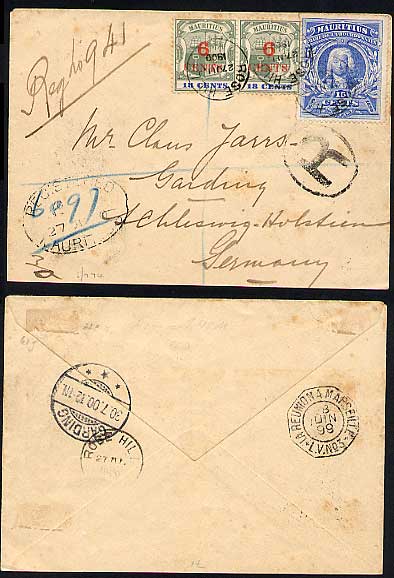 Reg No 941
MAURITIUS
6
CENTS
18 CENTS
MAURITIUS
6
CENTS
18 CENTS
MAURITIUS
15
CENTS
1900
ROSE
Mr Claus Jarrs
Garding
Schleswig-Holstein
Germany
R
REGISTERED
6097
27
MAURITIUS
GARDING
30.7.00.12-1N.
ROSE HILL
27
LA REUNION A MARSEILLE
3
JUIN
99
L.V.No3